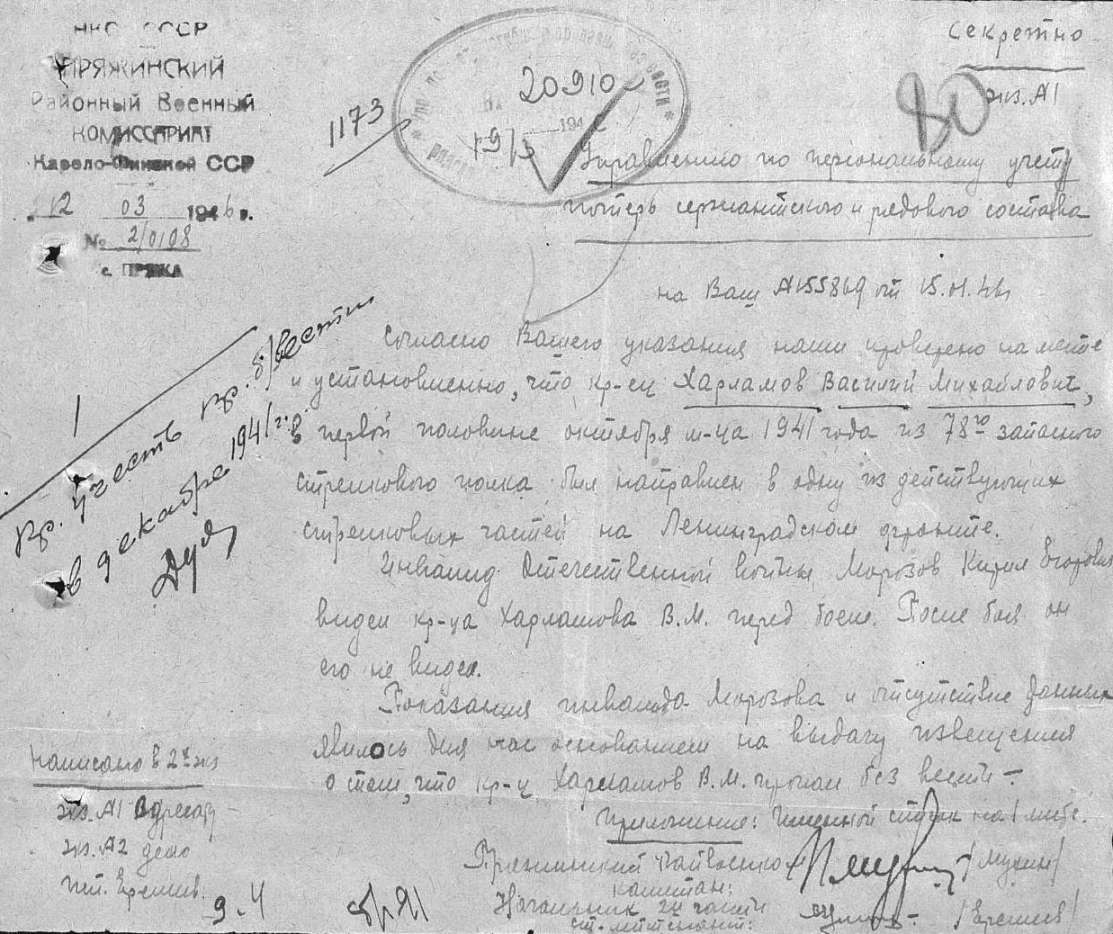 НКО СССР
ПРЯЖИНСКИЙ
Районный Военный
КОМИССАРИАТ
Карело-Финской ССР
12 03 1946 г.
№ 2/0108
с. ПРЯЖА
1173
20910
19/3 194
Секретно
экз. №1
80
Управлению по персональному учету
потерь сержантского и рядового состава
на Ваш №155869 от 15.01.46
Согласно Вашего указания нами проверено на месте
и установленно, что кр-ец Харламов Василий Михайлович,
в первой половине октября м-ца 1941 года из 78го запасного
стрелкового полка был направлен в одну из действующих
стрелковых частей на Ленинградском фронте.
Инвалид Отечественной войны Морозов Кирил Егорович
видел кр-ца Харламова В.М. перед боем. После боя он
его не видел.
Показания инвалида Морозова и отсутствие данных
явилось для нас основанием на выдачу извещения
о том, что кр-ц Харламов В.М. пропал без вести —
Приложение: Именной список на 1 листе.
Пряжинский Райвоенком
капитан: /Мухин/
Начальник 2й части
ст. лейтенант: /Ерешев/
1
Пр. учесть пр. б/вести
в декабре 1941 г.
Написано в 2х экз
экз. №1 Адресату
экз. №2 дело
исп. Ерешев.
9.4